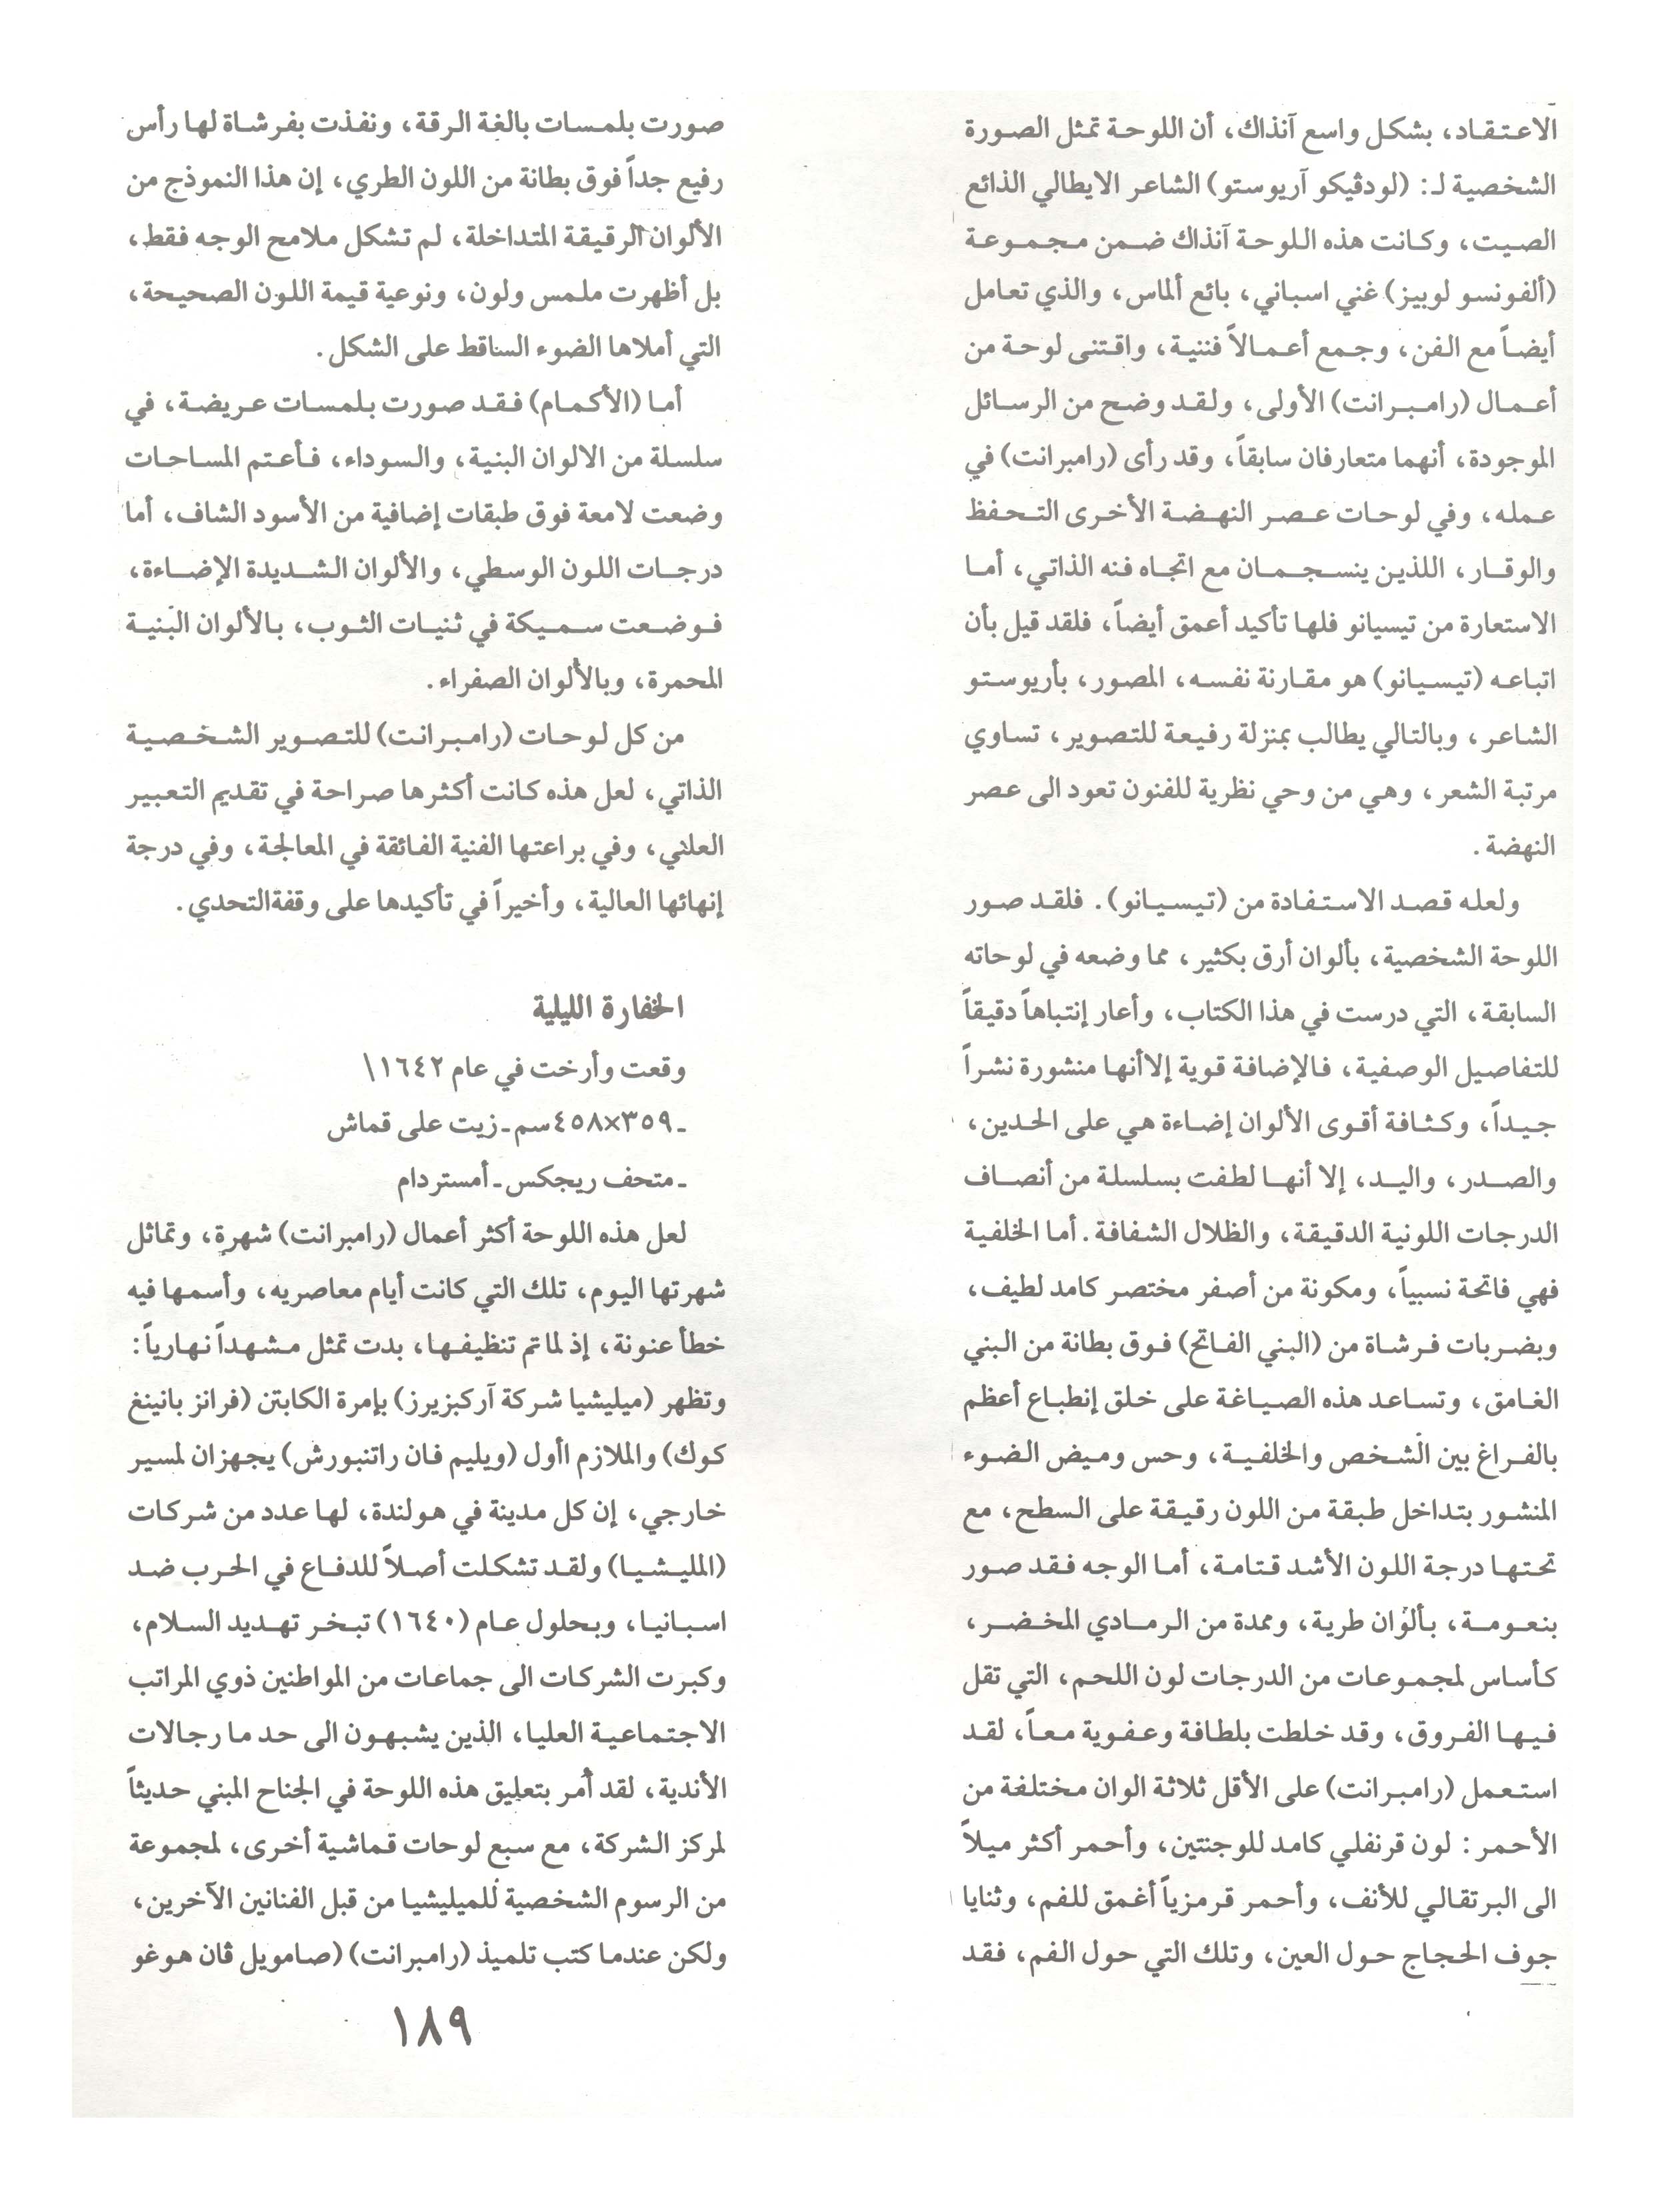 الاعتقاد، بشكل واسع آنذاك، أن اللوحة تمثل الصورة
الشخصية لـ: (لودڤيكو آريوستو) الشاعر الايطالي الذائع
الصيت، وكانت هذه اللوحة آنذاك ضمن مجموعة
(ألفونسو لوبيز) غني اسباني، بائع ألماس، والذي تعامل
أيضاً مع الفن، وجمع أعمالاً فننية، واقتنى لوحة من
أعمال (رامبرانت) الأولى، ولقد وضح من الرسائل
الموجودة، أنهما متعارفان سابقاً، وقد رأى (رامبرانت) في
عمله، وفي لوحات عصر النهضة الأخرى التحفظ
والوقار، اللذين ينسجمان مع اتجاه فنه الذاتي، أما
الاستعارة من تيسيانو فلها تأكيد أعمق أيضاً، فلقد قيل بأن
اتباعه (تيسيانو) هو مقارنة نفسه، المصور، بأريوستو
الشاعر، وبالتالي يطالب بمنزلة رفيعة للتصوير، تساوي
مرتبة الشعر، وهي من وحي نظرية للفنون تعود الى عصر
النهضة.
ولعله قصد الاستفادة من (تيسيانو). فلقد صور
اللوحة الشخصية، بألوان أرق بكثير، مما وضعه في لوحاته
السابقة، التي درست في هذا الكتاب، وأعار إنتباهاً دقيقاً
للتفاصيل الوصفية، فالإضافة قوية إلاأنها منشورة نشراً
جيداً، وكثافة أقوى الألوان إضاءة هي على الخدين،
والصدر، واليد، إلا أنها لطفت بسلسلة من أنصاف
الدرجات اللونية الدقيقة، والظلال الشفافة. أما الخلفية
فهي فاتحة نسبياً، ومكونة من أصفر مختصر كامد لطيف،
وبضربات فرشاة من (البني الفاتح) فوق بطانة من البني
الغامق، وتساعد هذه الصياغة على خلق إنطباع أعظم
بالفراغ بين الشخص والخلفية، وحس وميض الضوء
المنشور بتداخل طبقة من اللون رقيقة على السطح، مع
تحتها درجة اللون الأشد قتامة، أما الوجه فقد صور
بنعومة، بألوان طرية، وممدة من الرمادي المخضر،
كأساس لمجموعات من الدرجات لون اللحم، التي تقل
فيها الفروق، وقد خلطت بلطافة وعفوية معاً، لقد
استعمل (رامبرانت) على الأقل ثلاثة الوان مختلفة من
الأحمر: لون قرنفلي كامد للوجنتين، وأحمر أكثر ميلاً
الى البرتقالي للأنف، وأحمر قرمزياً أغمق للفم، وثنايا
جوف الحجاج حول العين، وتلك التي حول الفم، فقد
صورت بلمسات بالغة الرقة، ونفذت بفرشاة لها رأس
رفيع جداً فوق بطانة من اللون الطري، إن هذا النموذج من
الألوان الرقيقة المتداخلة، لم تشكل ملامح الوجه فقط،
بل أظهرت ملمس ولون، ونوعية قيمة اللون الصحيحة،
التي أملاها الضوء الساقط على الشكل.
أما (الأكمام) فقد صورت بلمسات عريضة، في
سلسلة من الالوان البنية، والسوداء، فأعتم المساحات
وضعت لامعة فوق طبقات إضافية من الأسود الشاف، أما
درجات اللون الوسطي، والألوان الشديدة الإضاءة،
فوضعت سميكة في ثنيات الثوب، بالألوان البنية
المحمرة، وبالألوان الصفراء.
من كل لوحات (رامبرانت) للتصوير الشخصية
الذاتي، لعل هذه كانت أكثرها صراحة في تقديم التعبير
العلني، وفي براعتها الفنية الفائقة في المعالجة، وفي درجة
إنهائها العالية، وأخيراً في تأكيدها على وقفةالتحدي.
الخفارة الليلية
وقعت وأرخت في عام ١٦٤٢\
ـ ٣٥٩×٤٥٨ سم ـ زيت على قماش
ـ متحف ريجكس ـ أمستردام
لعل هذه اللوحة أكثر أعمال (رامبرانت) شهرة، وتماثل
شهرتها اليوم، تلك التي كانت أيام معاصريه، وأسمها فيه
خطأ عنونة، إذ لماتم تنظيفها، بدت تمثل مشهداً نهارياً:
وتظهر (ميليشيا شركة آركبزيرز) بإمرة الكابتن (فرانز بانينغ
كوك) والملازم اأول (ويليم فان راتنبورش) يجهزان لمسير
خارجي، إن كل مدينة في هولندة، لها عدد من شركات
(المليشيا) ولقد تشكلت أصلاً للدفاع في الحرب ضد
اسبانيا، وبحلول عام (١٦٤٠) تبخر تهديد السلام،
وكبرت الشركات الى جماعات من المواطنين ذوي المراتب
الاجتماعية العليا، الذين يشبهون الى حد ما رجالات
الأندية، لقد أمر بتعليق هذه اللوحة في الجناح المبني حديثاً
لمركز الشركة، مع سبع لوحات قماشية أخرى، لمجموعة
من الرسوم الشخصية للميليشيا من قبل الفنانين الآخرين،
ولكن عندما كتب تلميذ (رامبرانت) (صامويل ڤان هوغو
١٨٩